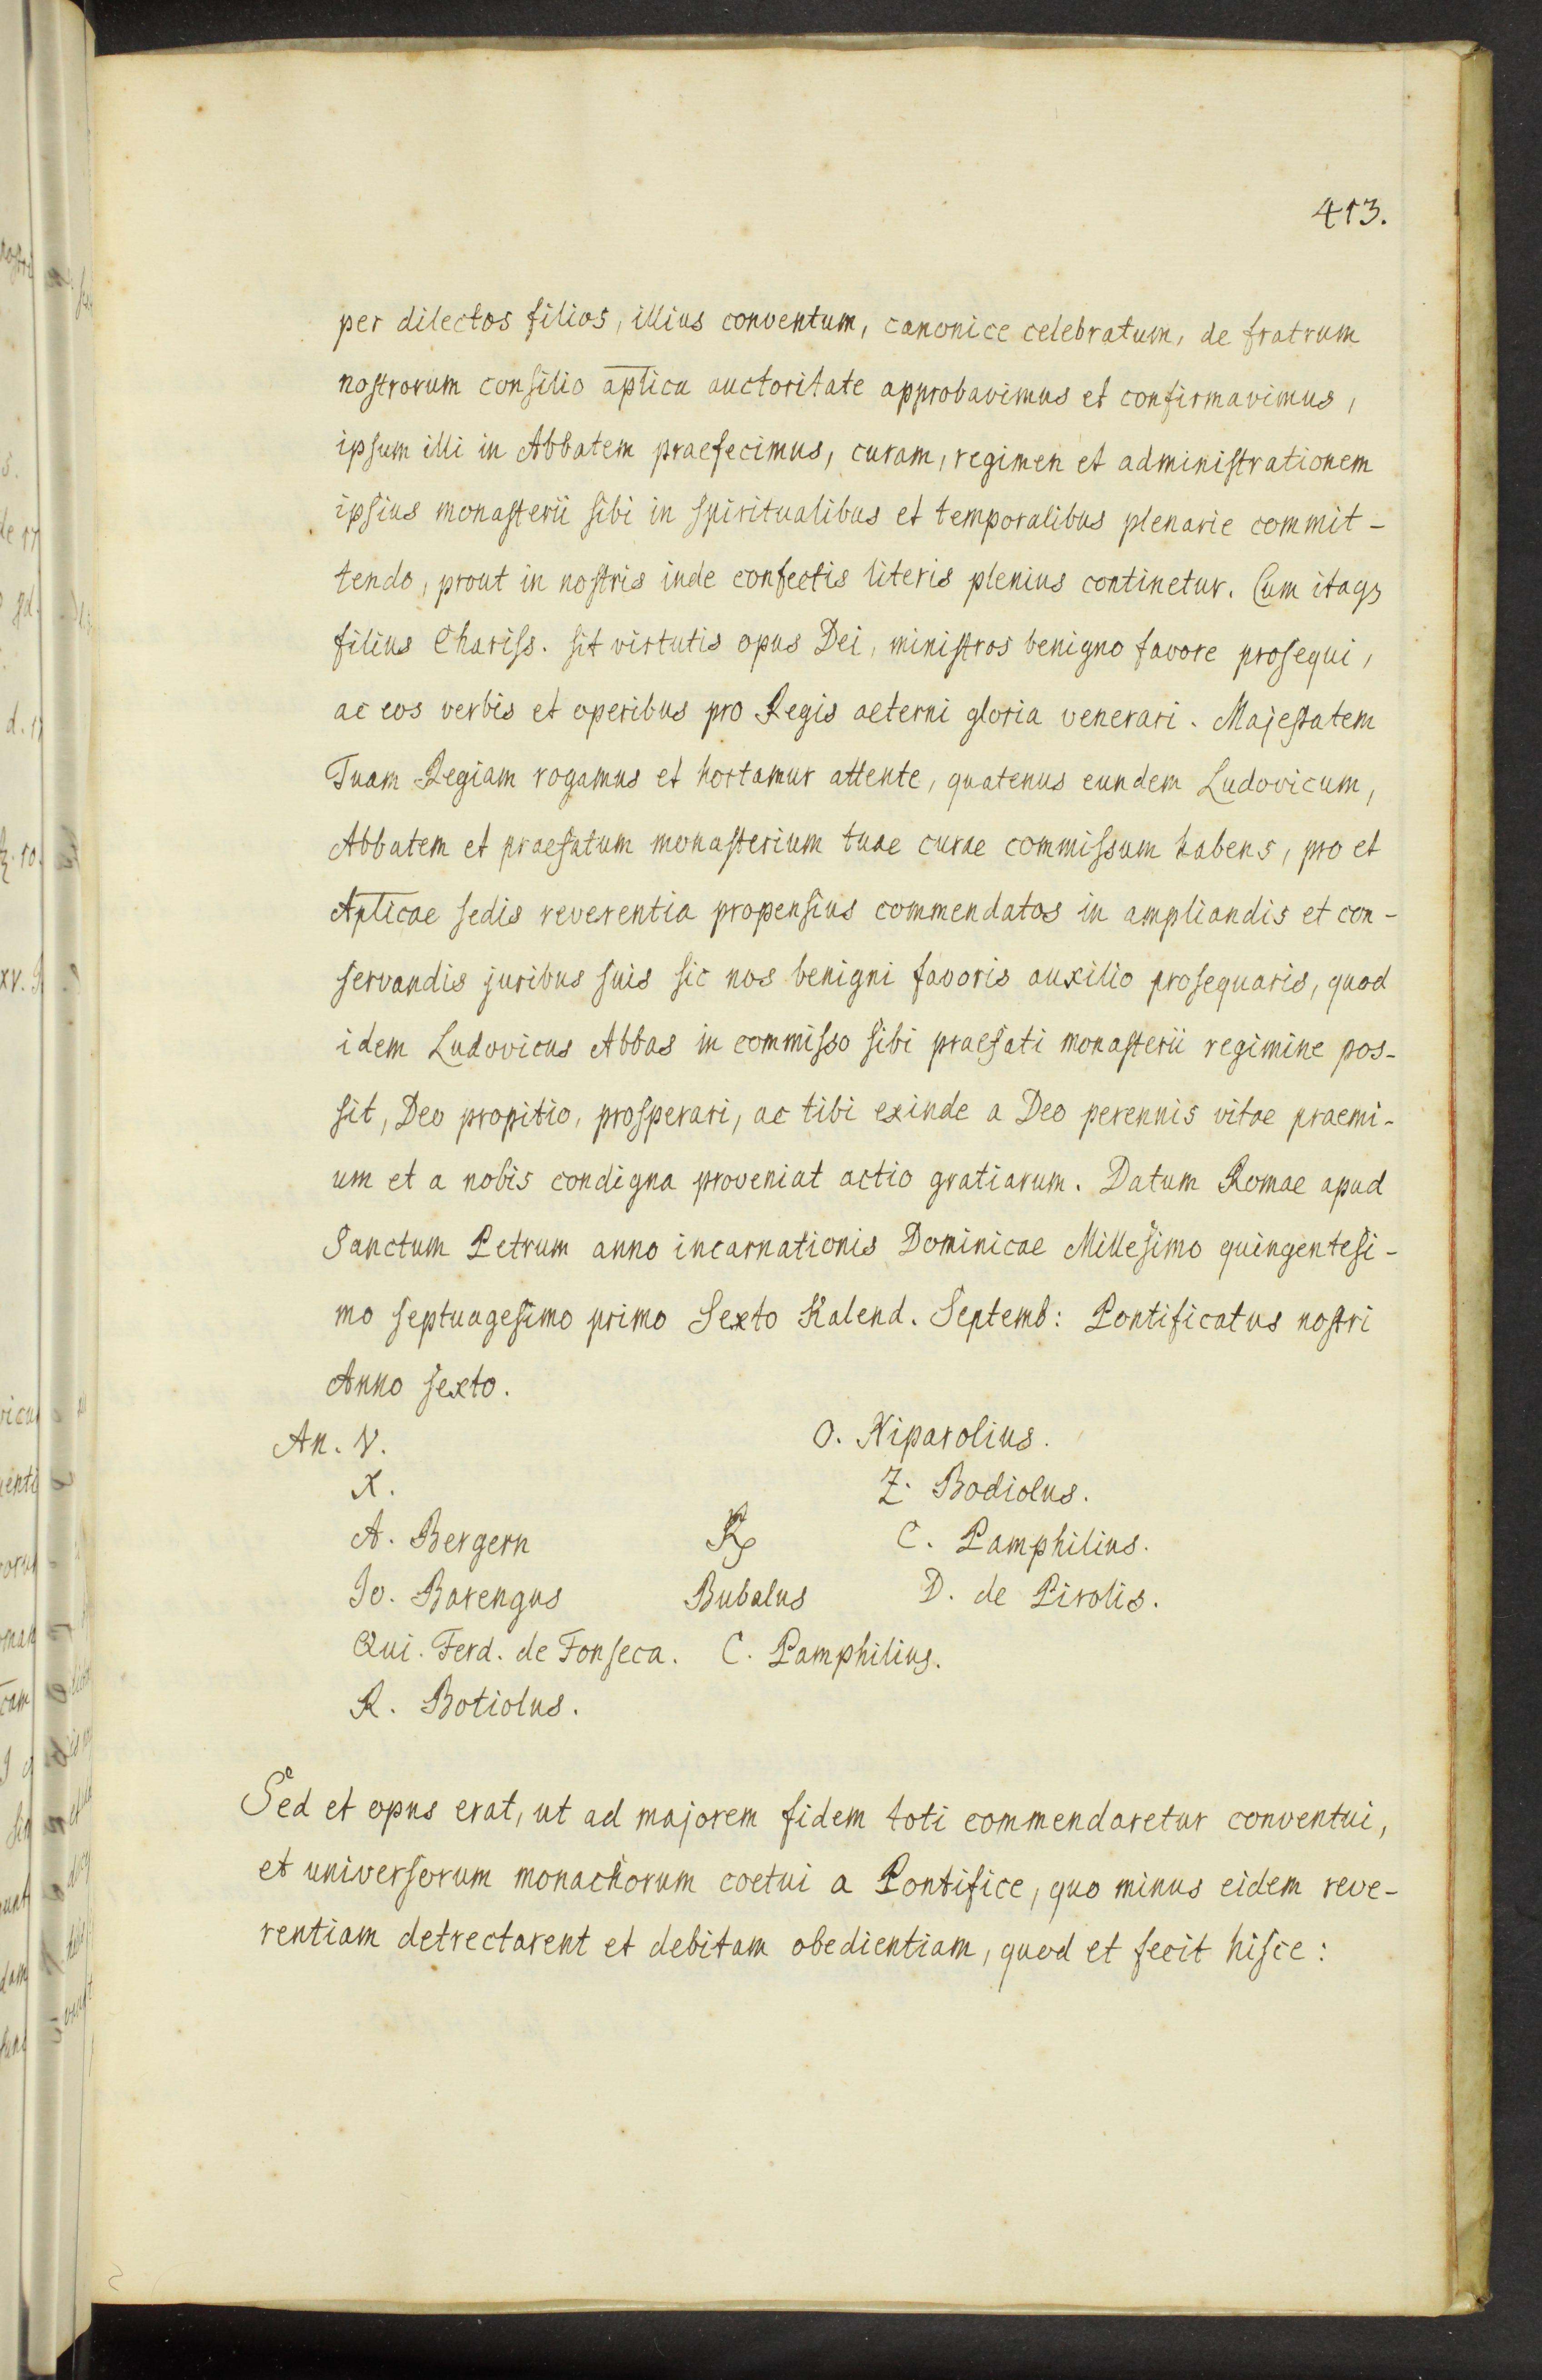 413.
per dilectos filios, illius conventum, canonice celebratum, de fratrum
noſtrorum conſilio aplica auctoritate approbavimus et confirmavimus,
ipſum illi in Abbatem praefecimus, curam, regimen et adminiſtrationem
ipſius monaſterii ſibi in ſpiritualibus et temporalibus plenarie commit-
tendo, prout in noſtris inde confectis literis plenius continetur. Cum itaqꝫ
filius Chariſs. ſit virtutis opus Dei, miniſtros benigno favore proſequi,
ac eos verbis et operibus pro Regis aeterni gloria venerari. Majeſtatem
Tuam Regiam rogamus et hortamur attente, quatenus eundem Ludovicum,
Abbatem et praefatum monaſterium tuae curae commiſsum habens, pro et
Aplicae ſedis reverentia propenſius commendatos in ampliandis et con-
ſervandis juribus ſuis ſic nos benigni favoris auxilio proſequaris, quod
idem Ludovicus Abbas in commiſso ſibi praefati monaſterii regimine pos-
ſit, Deo propitio, proſperari, ac tibi exinde a Deo perennis vitae praemi-
um et a nobis condigna proveniat actio gratiarum. Datum Romae apud
Sanctum Petrum anno incarnationis Dominicae Milleſimo quingenteſi-
mo ſeptuageſimo primo Sexto Kalend. Septemb: Pontificatus noſtri
Anno ſexto.
An. V. O. Xiparolius.
X. Z. Bodiolus.
A. Bergern C. Pamphilius.
Jo. Barengus Bubalus D. de Pirolis.
Qui. Ferd. de Fonſeca. C. Pamphilius.
R. Botiolus.
Sed et opus erat, ut ad majorem fidem toti commendaretur conventui,
et univerſorum monachorum coetui a Pontifice, quo minus eidem reve-
rentiam detrectarent et debitam obedientiam, quod et fecit hiſce: